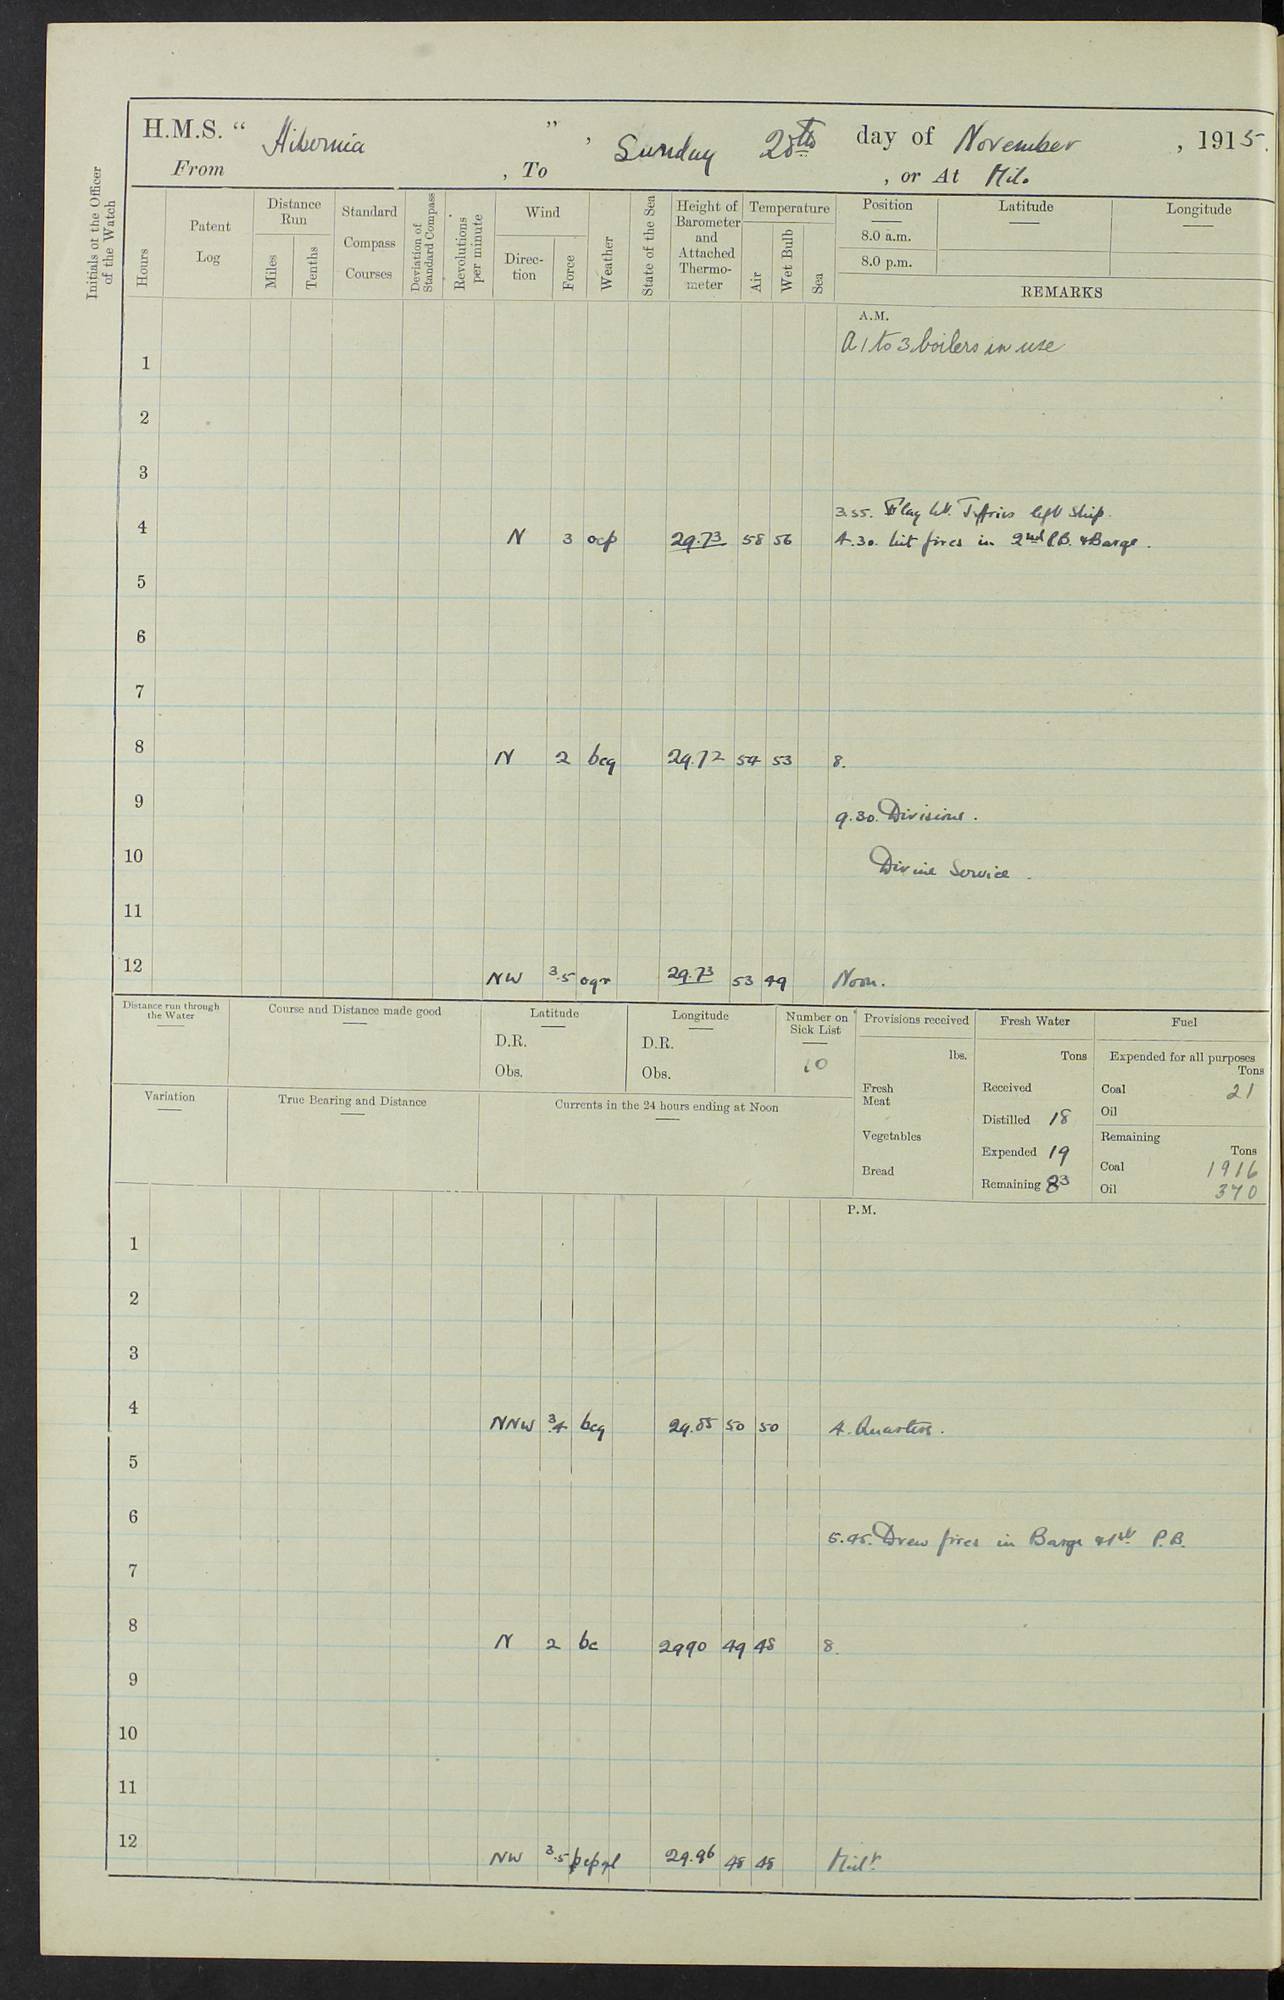 H.M.S. " Hibernia " , Sunday 28th day of November , 1915.
From , To , or At Milo
Initials of the Officer of the Watch
Hours
Patent Log
Distance Run
Miles
Tenths
Standard Compass Courses
Deviation of Standard Compass
Revolutions per minute
Wind
Direction
Force
Weather
State of the Sea
Height of Barometer and Attached Thermometer
Temperature
Air
Wet Bulb
Sea
Position Latitude Longitude
8.0 a.m.
8.0 p.m.
REMARKS
A.M.
A 1 to 3 boilers in use
1
2
3
3.55. Flag Lt. left ship.
4 N 3 ocp 29.73 58 56 4.30. Lit fires in 2nd P.B. & Barge.
5
6
7
8 N 2 bcq 29.72 54 53 8.
9 9.30. Divisions.
10 Divine Service.
11
12 NW 3.5 oqr 29.73 53 49 Noon.
Distance run through the Water
Course and Distance made good
Latitude
D.R.
Obs.
Longitude
D.R.
Obs.
Number on Sick List
10
Provisions received
lbs.
Fresh Meat
Vegetables
Bread
Fresh Water
Tons
Received
Distilled 18
Expended 19
Remaining 83
Fuel
Expended for all purposes
Tons
Coal 21
Oil
Remaining
Tons
Coal 1916
Oil 370
Variation
True Bearing and Distance
Currents in the 24 hours ending at Noon
P.M.
1
2
3
4 NNW 3.4 bcq 29.85 50 50 4. Quarters.
5
6 5.45. Drew fires in Barge & 1st P.B.
7
8 N 2 bc 2990 49 48 8.
9
10
11
12 NW 3.5 29.96 48 48 Midt.